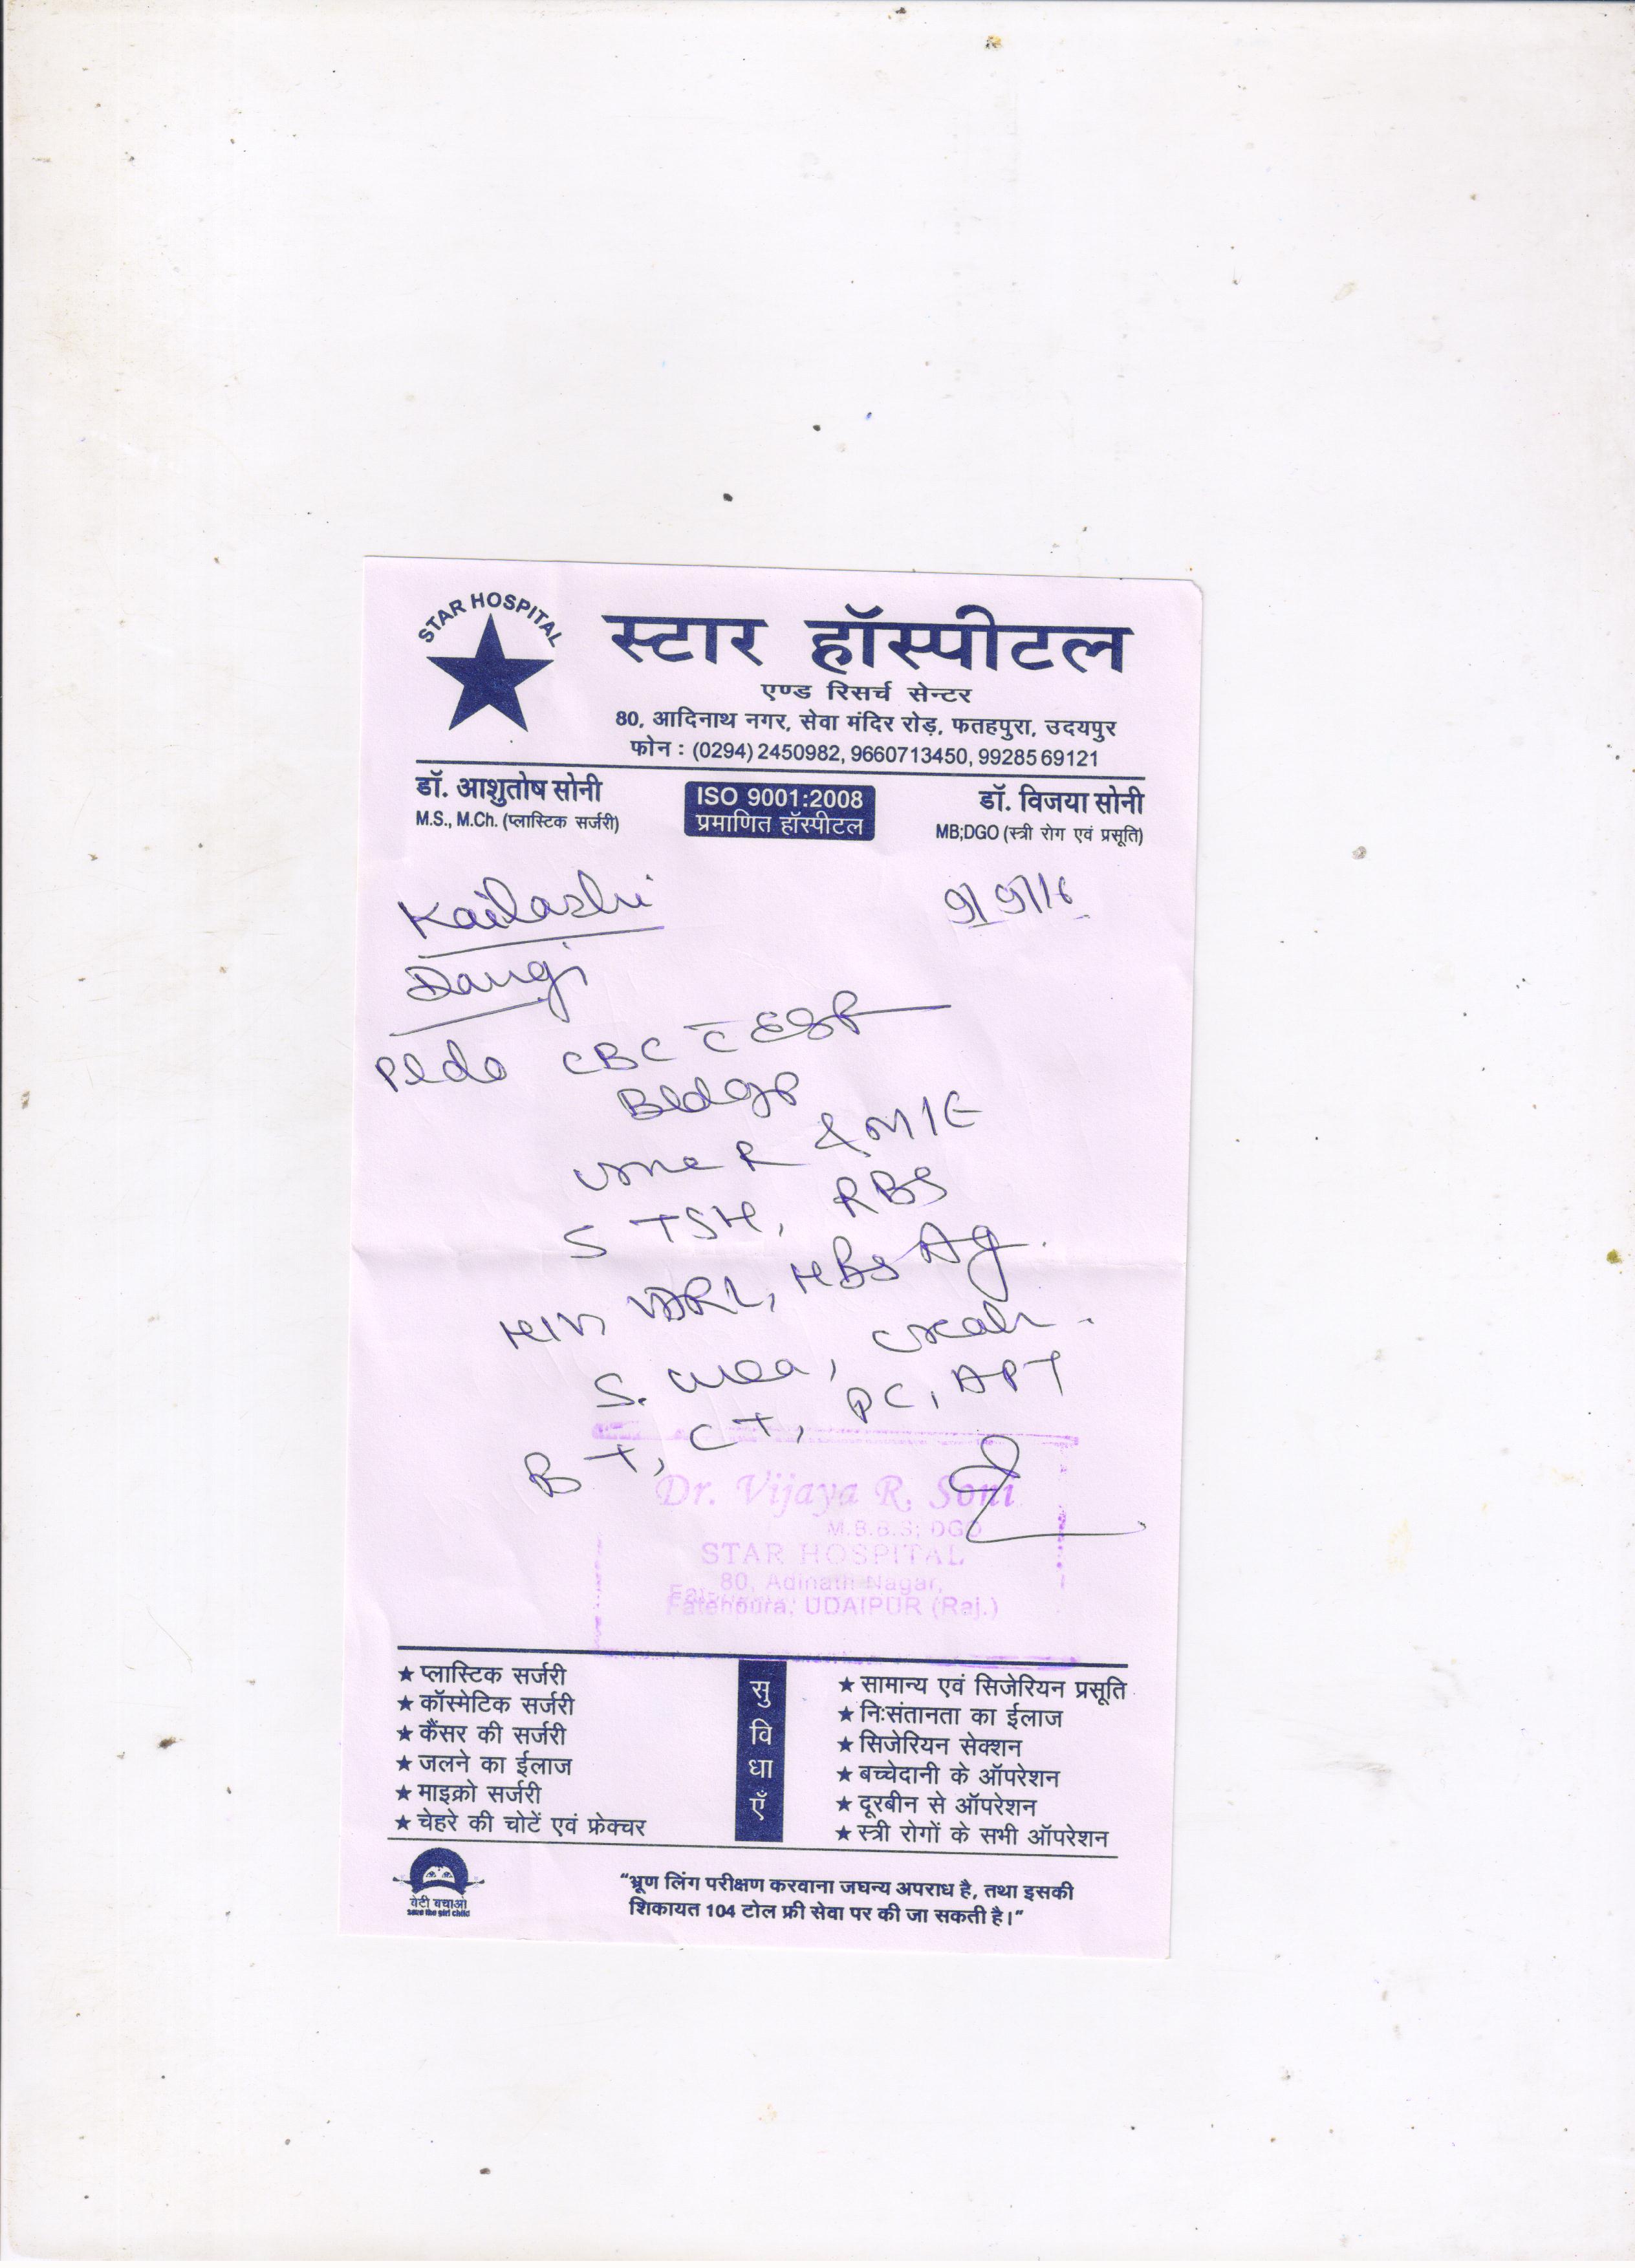 STAR HOSPITAL
स्टार हॉस्पीटल
एण्ड रिसर्च सेन्टर
80, आदिनाथ नगर, सेवा मंदिर रोड़, फतहपुरा, उदयपुर
फोन : (0294) 2450982, 9660713450, 9928569121
डॉ. आशुतोष सोनी
M.S., M.Ch. (प्लास्टिक सर्जरी)
ISO 9001:2008
प्रमाणित हॉस्पीटल
डॉ. विजया सोनी
MB;DGO (स्त्री रोग एवं प्रसूति)
Kailashi
9/9/16
Dangi
Pl do CBC c̅ ESR
Bld gp
Urine R & M/E
S TSH, RBS
HIV VDRL, HBs Ag.
S. Urea, creat.
BT, CT, PC, APT
Dr. Vijaya R. Soni
M.B.B.S; DGO
STAR HOSPITAL
80, Adinath Nagar,
Fatehpura, UDAIPUR (Raj.)
★ प्लास्टिक सर्जरी
★ कॉस्मेटिक सर्जरी
★ कैंसर की सर्जरी
★ जलने का ईलाज
★ माइक्रो सर्जरी
★ चेहरे की चोटें एवं फ्रेक्चर
सु
वि
धा
एँ
★ सामान्य एवं सिजेरियन प्रसूति
★ निःसंतानता का ईलाज
★ सिजेरियन सेक्शन
★ बच्चेदानी के ऑपरेशन
★ दूरबीन से ऑपरेशन
★ स्त्री रोगों के सभी ऑपरेशन
बेटी बचाओ
save the girl child
“भ्रूण लिंग परीक्षण करवाना जघन्य अपराध है, तथा इसकी
शिकायत 104 टोल फ्री सेवा पर की जा सकती है।”